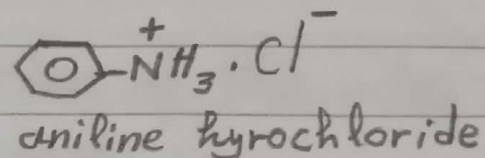 -N⁺H₃·Cl⁻
aniline hyrochloride